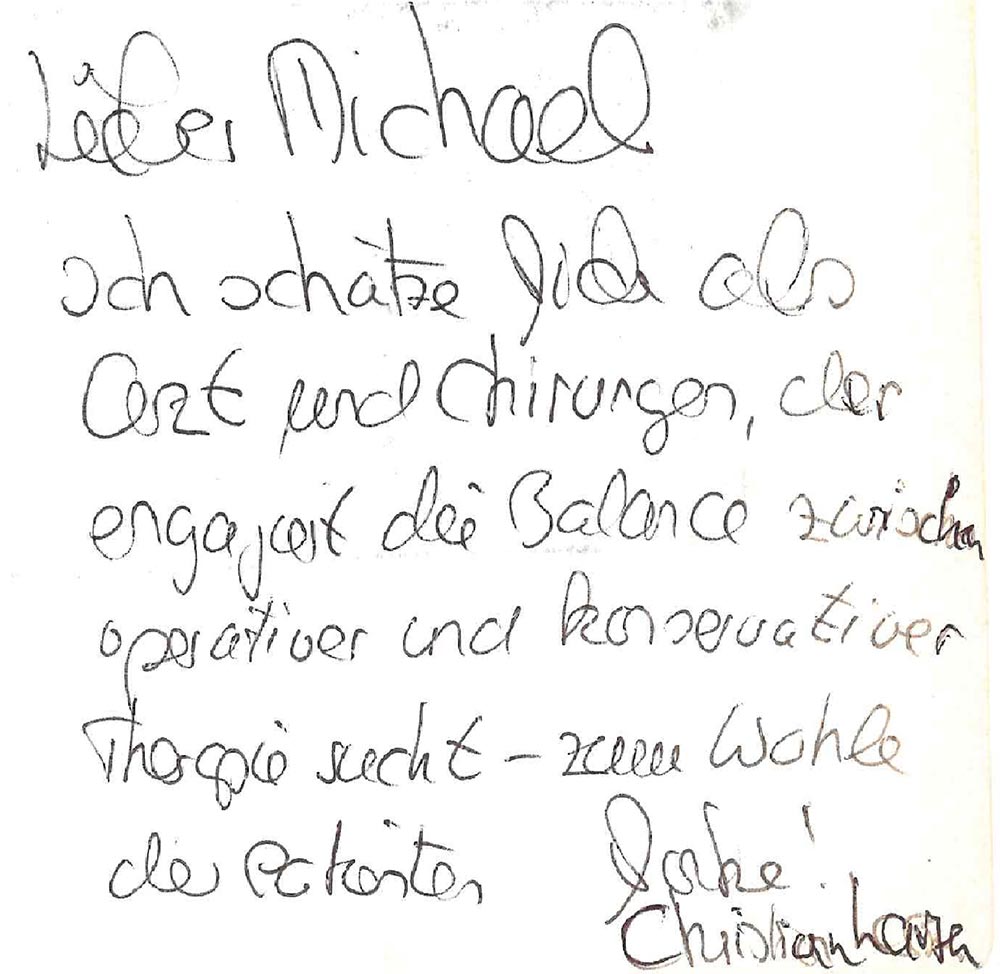 Lieber Michael
ich schätze Dich als
Arzt und Chirurgen, der
engagiert die Balance zwischen
operativer und konservativer
Therapie sucht – zum Wohle
der Patienten Danke!
Christian